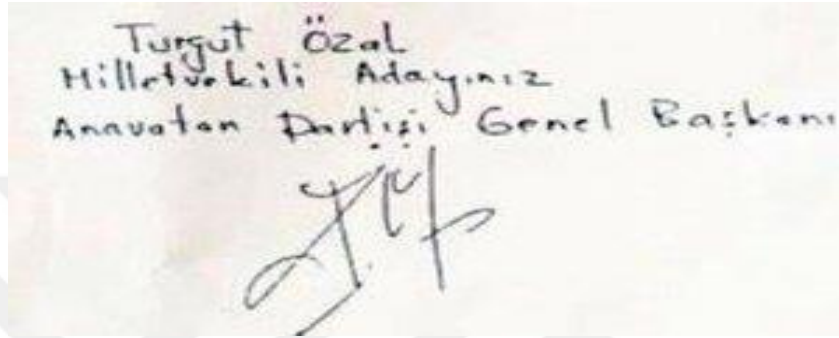 Turgut Özal
Milletvekili Adayınız
Anavatan Partisi Genel Başkanı